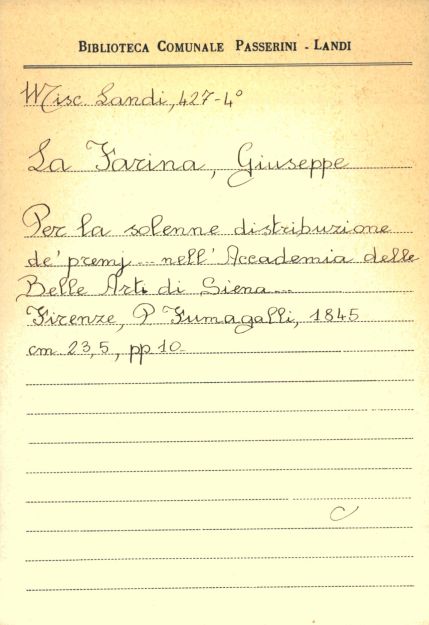 BIBLIOTECA COMUNALE PASSERINI - LANDI
Misc. Landi, 427-4°
La Farina, Giuseppe
Per la solenne distribuzione
de' premj ... nell' Accademia delle
Belle Arti di Siena ...
Firenze, P. Fumagalli, 1845
cm 23,5, pp 10
C